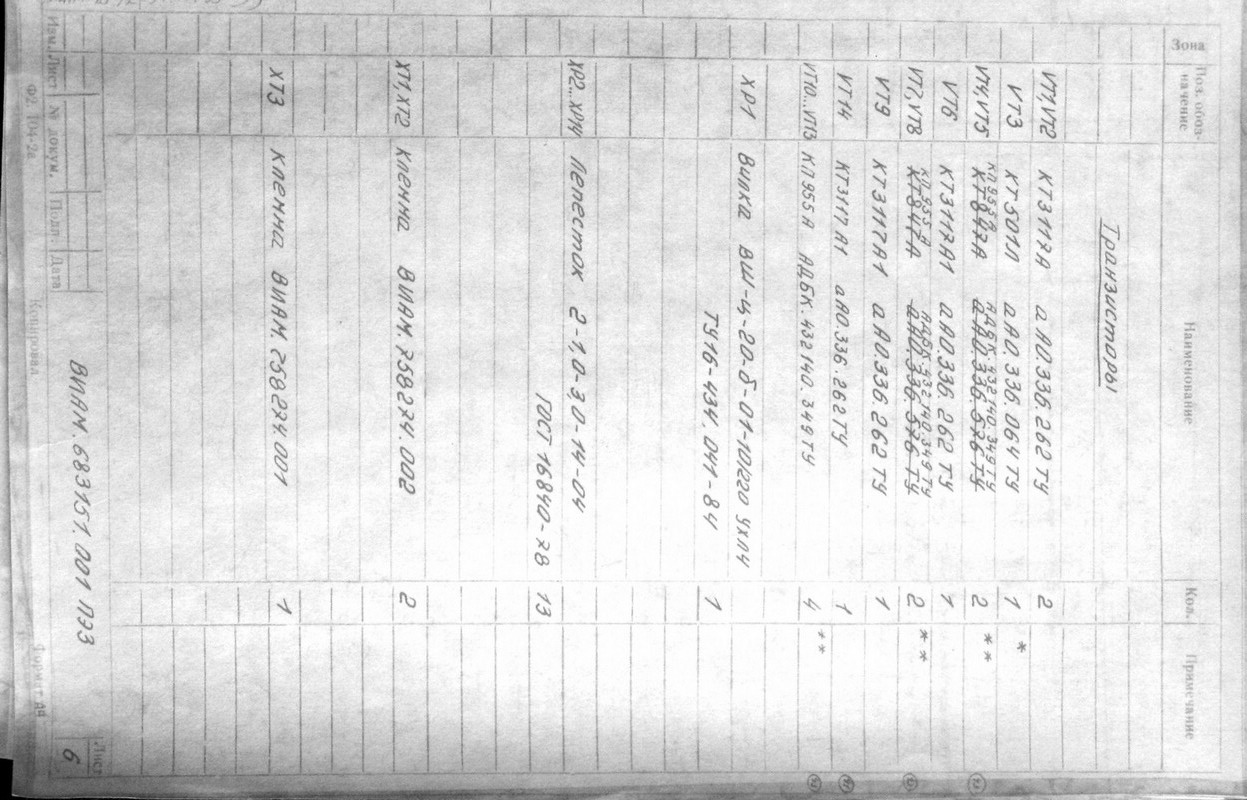 Зона Поз. обозначение Наименование Кол. Примечание
Транзисторы
VT1,VT2 КТ3117А аА0336.262ТУ 2
VT3 КТ501Л аА0.336.064ТУ 1 *
КП955А АДБК.432140.349ТУ
VT4,VT5 КТ847А аА0.336.576ТУ 2 **
VT6 КТ3117А1 аА0.336.262ТУ 1
КП955А АДБК.432140.349ТУ
VT7,VT8 КТ847А аА0.336.576ТУ 2 **
VT9 КТ3117А1 аА0.336.262ТУ 1
VT14 КТ3117А1 аА0.336.262ТУ 1
VT10...VT13 КП955А АДБК.432140.349ТУ 4 **
XP1 Вилка ВШ-ц-20-б-01-10/220 УХЛ4
ТУ16-434.041-84 1
XP2...XP14 Лепесток 2-1,0-3,0-14-04
ГОСТ 16840-78 13
XT1,XT2 Клемма ВИАМ.758274.002 2
XT3 Клемма ВИАМ.758274.001 1
ВИАМ.683151.001 ПЭ3
Лист
6
Изм. Лист № докум. Подп. Дата
Ф2. 104-2а Копировал Формат А4